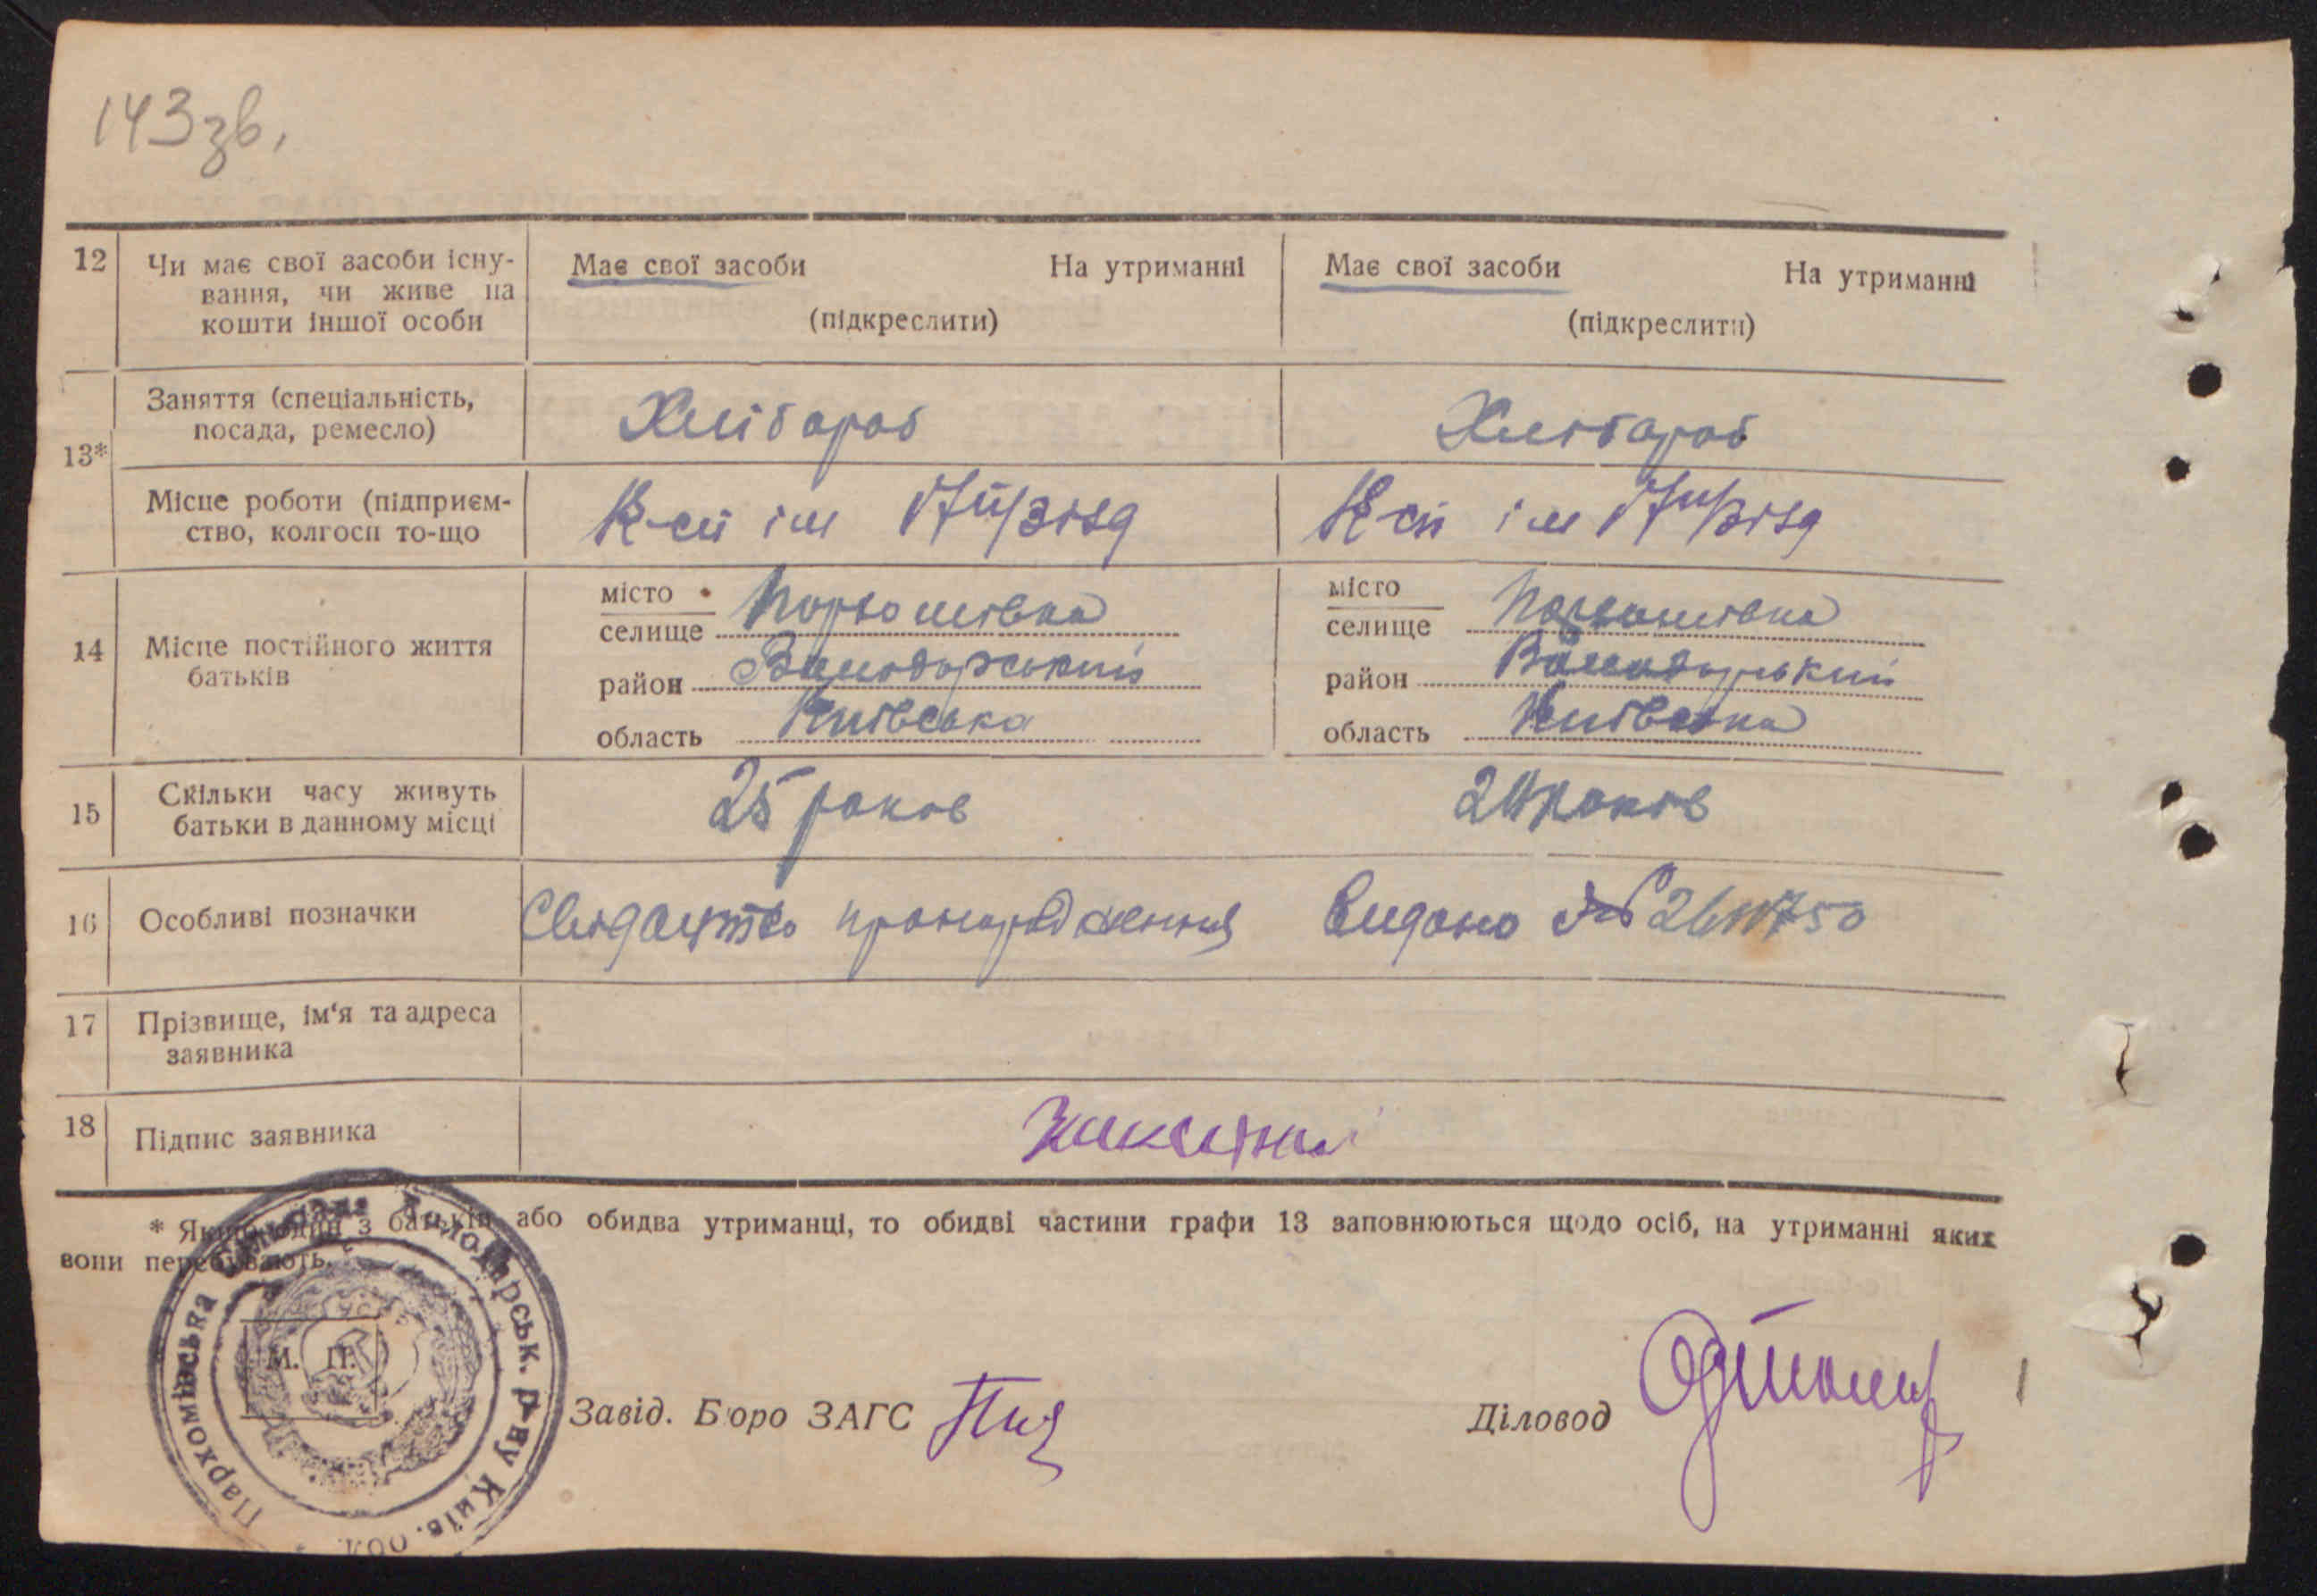 143 зв.
12 Чи має свої засоби існу-
вання, чи живе на
кошти іншої особи
Має свої засоби На утриманні
(підкреслити)
Має свої засоби На утриманні
(підкреслити)
13*
Заняття (спеціальність,
посада, ремесло)
Хлібороб
Хлібороб
Місце роботи (підприєм-
ство, колгосп то-що
К-сп ім 17 п/зізд
К-сп ім 17 п/зізд
14 Місце постійного життя
батьків
місто
селище Пархомівка
район Володарський
область Київська
місто
селище Пархомівка
район Володарський
область Київська
15 Скільки часу живуть
батьки в данному місці
25 років
24 років
16 Особливі позначки
Свідоцтво про народження Видано №
17 Прізвище, ім‘я та адреса
заявника
18 Підпис заявника
* Якщо один з батьків або обидва утриманці, то обидві частини графи 13 заповнюються щодо осіб, на утриманні яких
вони перебувають.
Пархомівська Володарськ. р-ну Київ. обл.
М. П.
Завід. Бюро ЗАГС
Діловод